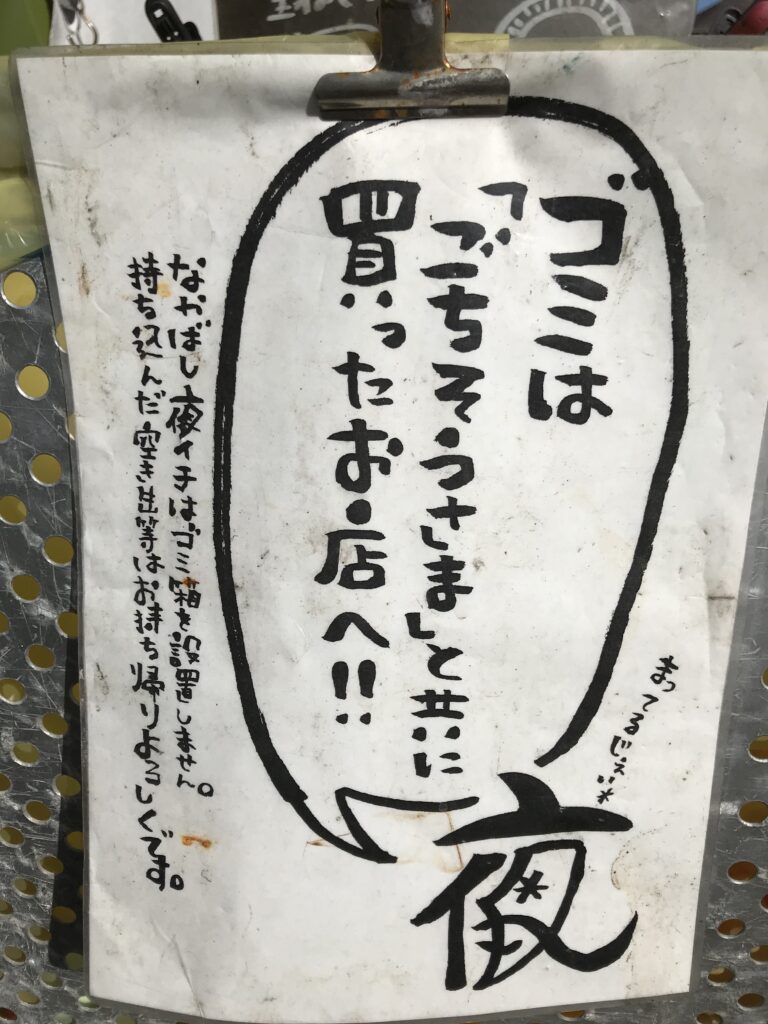 ゴミは
「ごちそうさま」と共に
買ったお店へ!!
まってるじぇい*
夜
なかばし夜イチはゴミ箱を設置しません。
持ち込んだ空き缶等はお持ち帰りよろしくです。